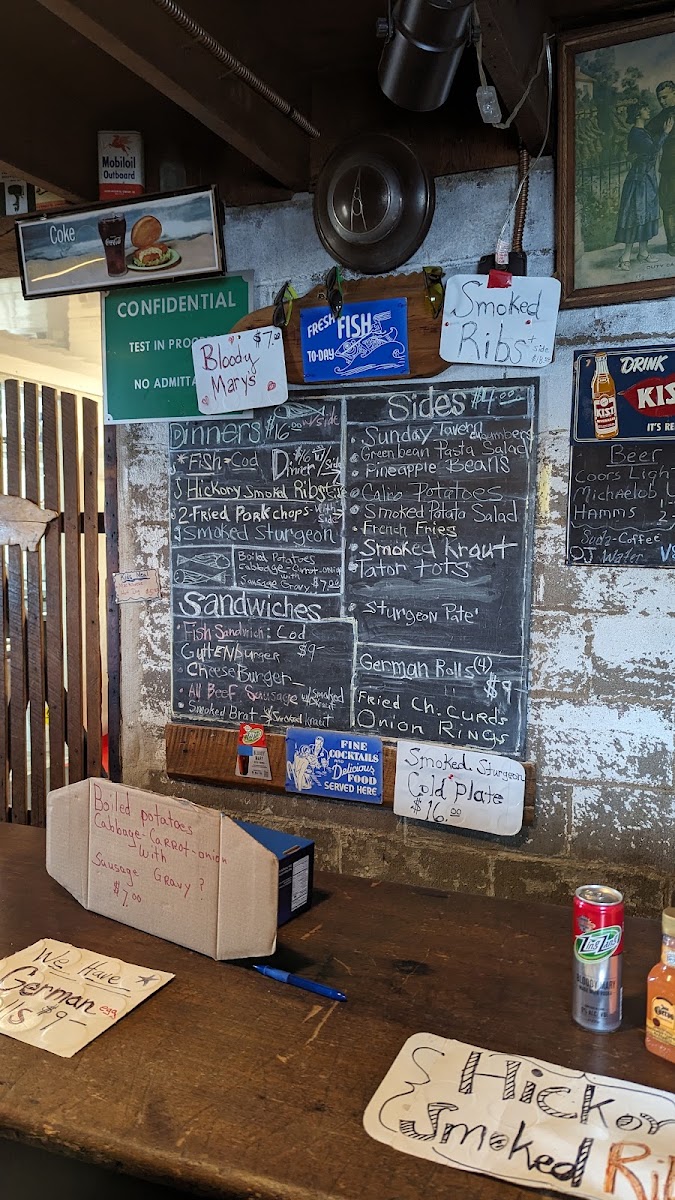 Mobiloil
Outboard
Coke
CONFIDENTIAL
TEST IN
NO
Bloody $7.00
Mary's
FRESH
FISH
TO-DAY
Smoked
Ribs
DRINK
KIS
KIST
IT'S RE
Dinners $16.00 w/side
Fish-Cod Dinner
Hickory Smoked Ribs
2-Fried Pork chops-with
Smoked Sturgeon
Boiled Potatoes
Cabbage-Carrot-onion
with
Sausage Gravy $7.00
Sandwiches
Fish Sandwich: Cod
Burger $9-
CheeseBurger
All Beef Sausage w/Smoked
Kraut
Smoked Brat w/Smoked Kraut
Sides $4.00
Sunday Tavern
Greenbean Pasta Salad
Pineapple Beans
Calico Potatoes
Smoked Potato Salad
French Fries
Smoked Kraut
Tator tots
Sturgeon Pate'
German Rolls (4)
$9
Fried Ch. Curds
Onion Rings
Beer
Coors Light
Michaelob
HAMMS
Soda-Coffee
OJ Water V8
FINE
COCKTAILS
AND
Delicious
FOOD
SERVED HERE
Smoked Sturgeon
Cold Plate
$16.00
Boiled potatoes
Cabbage-Carrot-onion
with
Sausage Gravy?
$7.00
We Have
German egg
lls $9-
Zing Zang
BLOODY MARY
Hickor
Smoked Rib